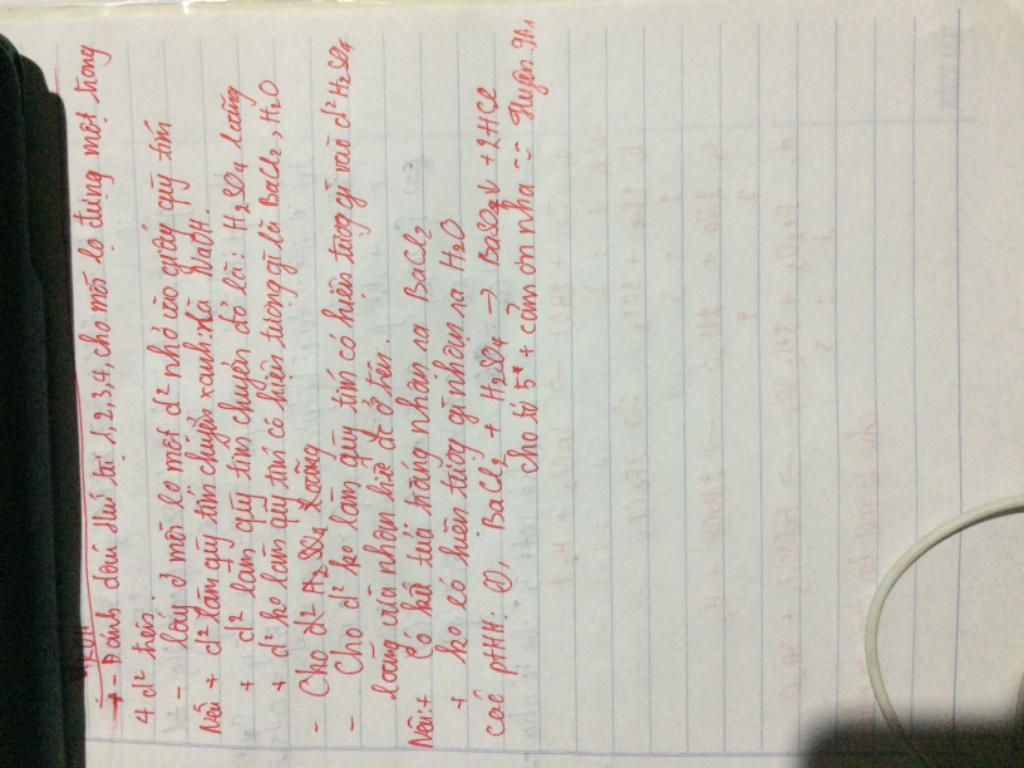 - Đánh dấu thứ tự 1, 2, 3, 4, cho mỗi lọ đựng một trong
4 d² trên.
- lấy ở mỗi lọ một d² nhỏ vào giấy quỳ tím
Nếu + d² làm quỳ tím chuyển xanh: là NaOH.
+ d² làm quỳ tím chuyển đỏ là: H₂SO₄ loãng
+ d² ko làm quỳ tím có hiện tượng gì là BaCl₂, H₂O
- Cho d² H₂SO₄ loãng
- Cho d² ko làm quỳ tím có hiện tượng gì vào d² H₂SO₄
loãng vừa nhận biết đc ở trên.
Nếu: + Có kết tủa trắng nhận ra BaCl₂
+ ko có hiện tượng gì nhận ra H₂O
các PTHH: ①, BaCl₂ + H₂SO₄ → BaSO₄↓ + 2HCl
cho tớ 5* + cảm ơn nha :- Huyền 9A1